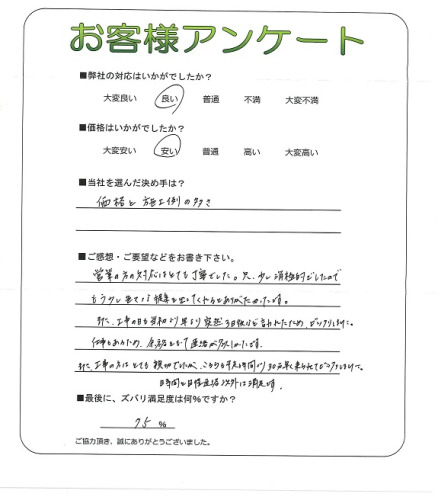 お客様アンケート
■弊社の対応はいかがでしたか？
大変良い 良い 普通 不満 大変不満
■価格はいかがでしたか？
大変安い 安い 普通 高い 大変高い
■当社を選んだ決め手は？
価格と施工例の多さ
■ご感想・ご要望などをお書き下さい。
営業の方の対応はとても丁寧でした。只、少し消極的でしたので
もう少し 提案を出してくれるとありがたかったです。
また、工事の日も 突然3日後と言われたため、ビックリしました。
仕事もあるため、余裕をもって連絡が欲しかったです。
また、工事の方はとても親切でしたが、 予定時間より30分早く来られてビックリしました。
時間と日程連絡以外は満足です。
■最後に、ズバリ満足度は何％ですか？
75 %
ご協力頂き、誠にありがとうございました。